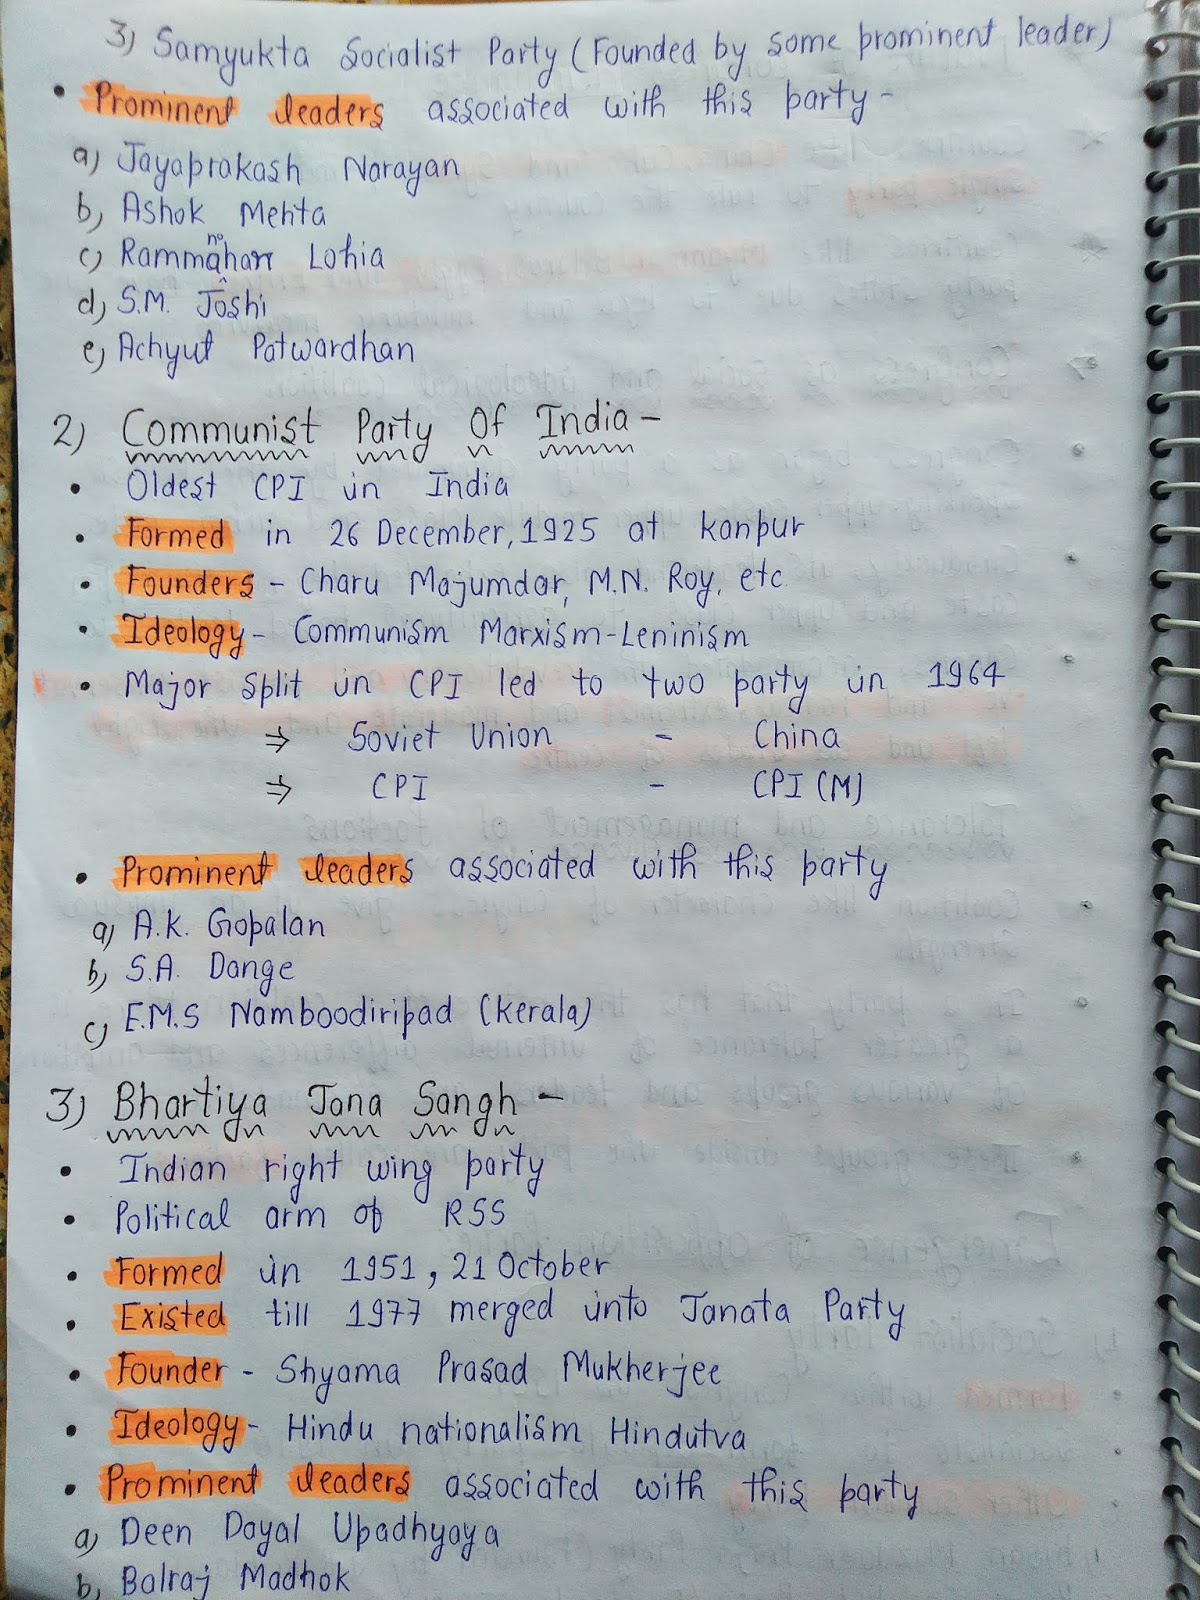 3) Samyukta Socialist Party (Founded by some prominent leader)
• Prominent leaders associated with this party -
a) Jayaprakash Narayan
b) Ashok Mehta
c) Rammanohar Lohia
d) S.M. Joshi
e) Achyut Patwardhan
2) Communist Party Of India -
• Oldest CPI in India
• Formed in 26 December, 1925 at Kanpur
• Founders - Charu Majumdar, M.N. Roy, etc.
• Ideology - Communism Marxism-Leninism
• Major Split in CPI led to two party in 1964
⇒ Soviet Union - China
⇒ CPI - CPI (M)
• Prominent leaders associated with this party
a) A.K. Gopalan
b) S.A. Dange
c) E.M.S Namboodiripad (Kerala)
3) Bhartiya Jana Sangh -
• Indian right wing party
• Political arm of RSS
• Formed in 1951, 21 October
• Existed till 1977 merged into Janata Party
• Founder - Shyama Prasad Mukherjee
• Ideology - Hindu nationalism Hindutva
• Prominent leaders associated with this party
a) Deen Dayal Upadhyaya
b) Balraj Madhok